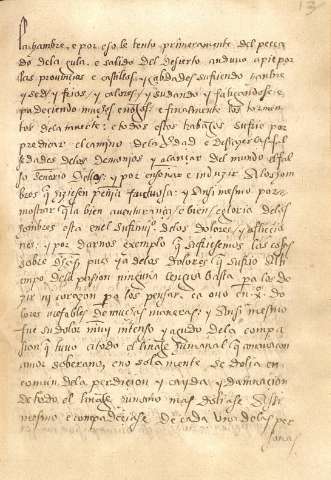 la hambre, e por eso le tento primeramente del peca
do dela gula. e salido del disierto anduvo a pie por
las provincias e castillos, y çibdades sufriendo hanbre
y sed y frios, y calores, y sudando y fatigandose e
padeciendo muchos enojos, e finalmente los tormen
tos dela muerte: e todos estos trabajos sufrio por
predicar el camino dela verdad e desfazer las fal
sedades delos demonios y alançar del mundo el fal
so y por enseñar e induzir a los hom
bres que hiziesen penitencia y ansi mesmo por
mostrar que la bien aventurança e bien e gloria delos
hombres esta en el sufrimiento delos dolores y aflicio
nes: y por darnos exemplo que sufriesemos las cosas
pues ya delos dolores que sufrio en el ti
empo dela pasion ninguna lengua basta para los de
zir ni corazon para los pensar, ca ovo en si do
lores inefables de muchas maneras: y ansi mesmo
fue su dolor muy intenso y agudo dela compa
sion que huvo a todo el linage humanal que con
amor soberano, e no solamente se dolia en
comun dela perdicion y cayda y damnacion
de todo el linage humano mas dolíase
mesmo e compadeciase de cada una delas per
sonas